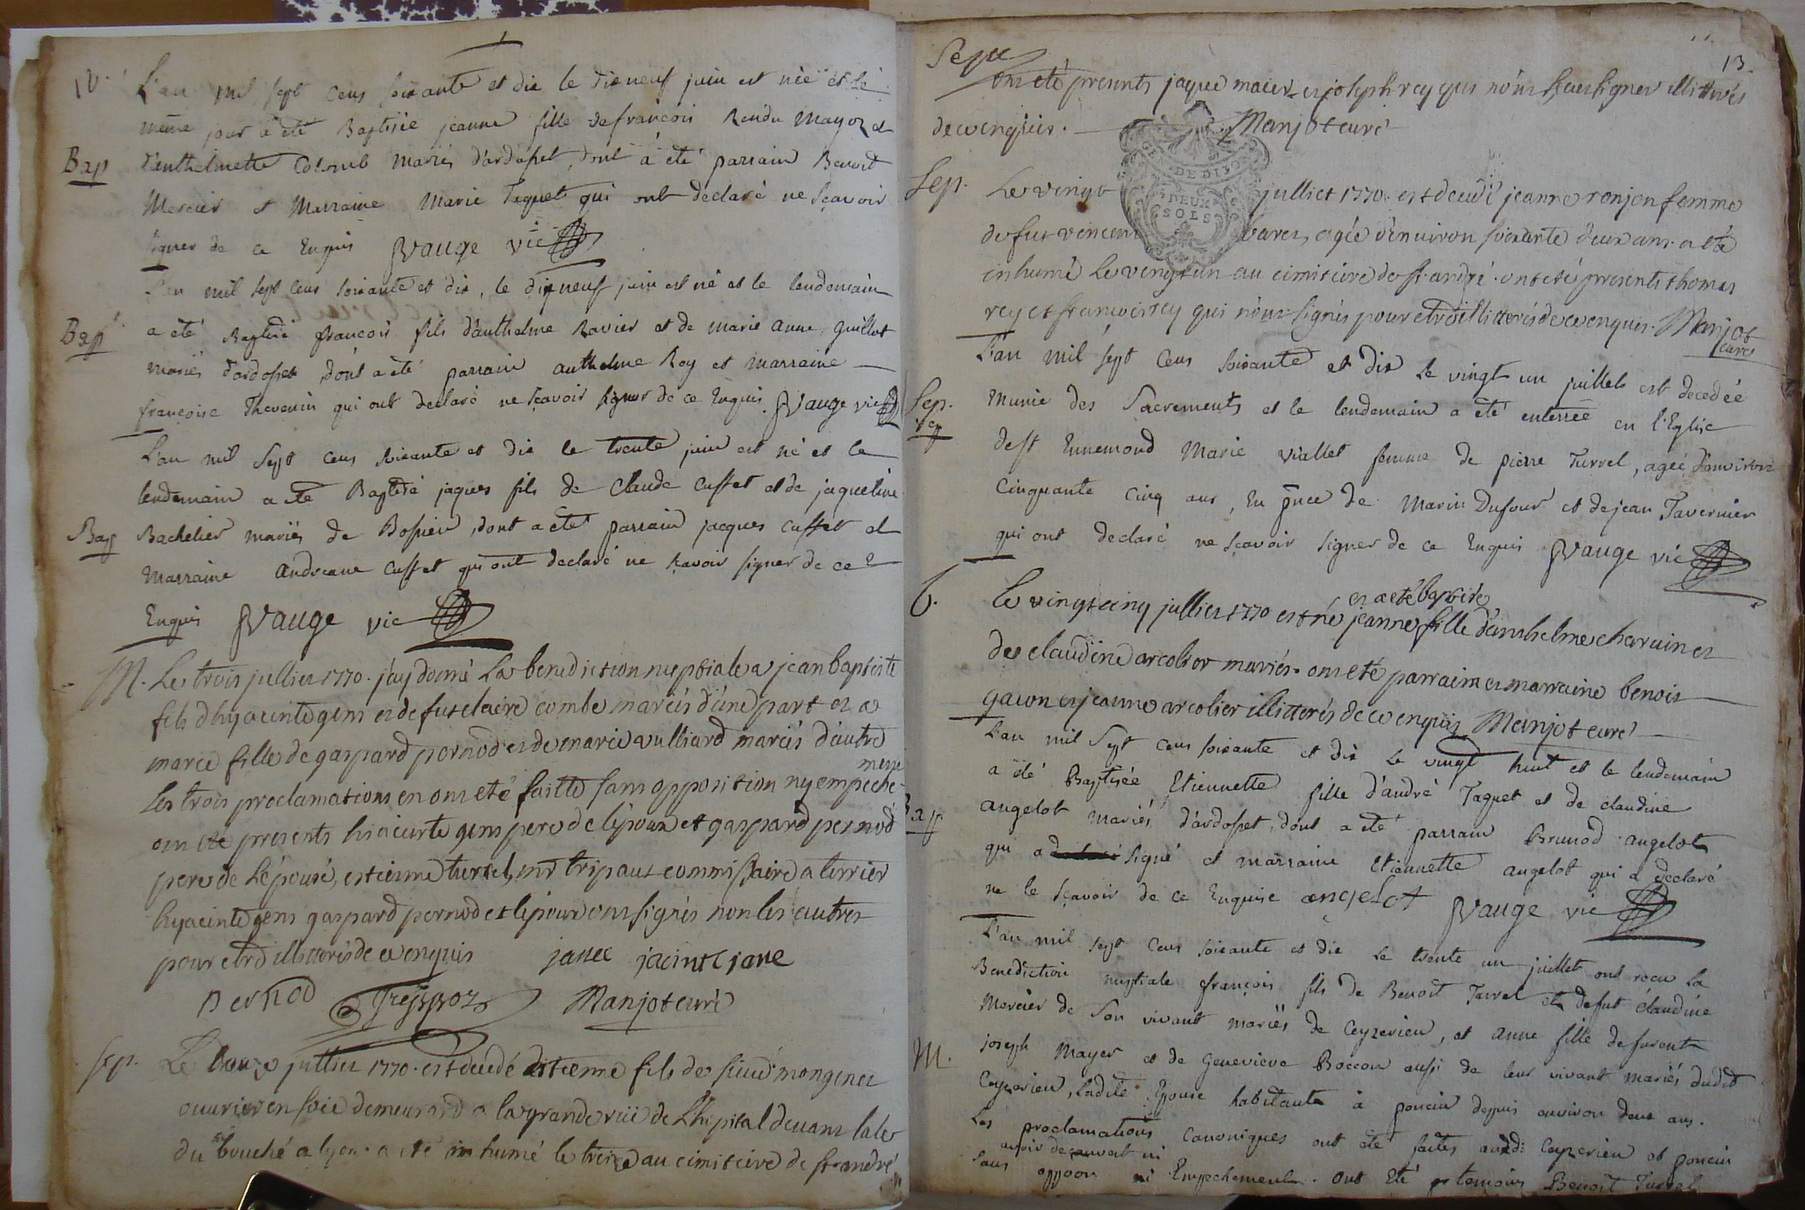 L'an mil sept cens soixante et dix le dix neuf juin est née et le
même jour a été Baptisée jeanne fille de françois Rendu Mayoz et
Bap d'anthelmette Colomb mariés d'ardosset, dont a été parrain Benoit
Mercier et Marraine Marie Taquet qui ont declaré ne sçavoir
signer de ce Enquis JVauge vic
L'an mil sept cens soixante et dix, le dix neuf juin est né et le lendemain
Bap a été Baptisé françois fils d'anthelme Ravier et de marie anne guillot
mariés d'ardosset dont a été parrain anthelme Rey et marraine
françoise Thevenin qui ont declaré ne sçavoir signer de ce Enquis JVauge vic
L'an mil sept cens soixante et dix le trente juin est né et le
lendemain a été Baptisé jaques fils de Claude Cusset et de jaqueline
Bap Bachelier mariés de Bossieu, dont a été parrain jacques Cusset et
Marraine andreane Cusset qui ont declaré ne sçavoir signer de ce
Enquis JVauge vic
M. Le trois jullier 1770. j'ay donné la benediction nuptiale a jean baptiste
fils d'hyacinte gens et de fut claire combe mariés d'une part et a
marie fille de gaspard pernod et de marie vulliard mariés d'autre
les trois proclamations en ont été faitte sans opposition ny empeche-
ment
ont été presents hiacinte gens pere de l'epoux et gaspard pernod
pere de l'épouse, estienne turrel, mr tripaut commissaire a terrier
hyacinte gens gaspard pernod et l'epoux ont signés non les autres
pour etre illitterés de ce enquis janee jacinte jane
Pernod Manjot curé
Sep. Le douze jullier 1770. est decedé estienne fils de mongenet
ouvrier en soie demeurant a la grande rüe de l'hopital devant
du bouché a lyon a été inhumé le treize au cimitiere de st andré
13.
Sepu
ont été presents jaque maier et joseph rey qui n'ont sceu signer illitterés
de ce enquis. Manjot curé
GE DE DI
DEUX
SOLS
Sep. Le vingt jullier 1770. est decedé jeanne ronjon femme
de fut vincent varez, agée d'environ soixante deux ans a été
inhumé le vingt un au cimitiere de st andré. ont été presents thomas
rey et françois rey qui n'ont signés pour etre illitterés de ce enquis. Manjot
curé
L'an mil sept cens soixante et dix le vingt un juillet est decedée
Sep. munie des Sacrements et le lendemain a été enterrée en l'Eglise
de st Ennemond Marie viallet femme de pierre Turrel, agée d'environ
Cinquante Cinq ans, En pnce de Marin Dufour et de jean Tavernier
qui ont declaré ne sçavoir signer de ce Enquis JVauge vic
et a été baptisée
b. Le vingt cinq jullier 1770 est né jeanne fille d'anthelme charvin et
de claudine arcolier mariés. ont été parrain et marraine benoit
gacon et jeanne arcolier illitterés de ce enquis Manjot curé
L'an mil Sept cens soixante et dix le vingt huit et le lendemain
a été Baptisée Etiennette fille d'andré Taquet et de claudine
Bap angelot mariés d'ardosset, dont a été parrain Brunod angelot
qui a signé et marraine Etiennette angelot qui a declaré
ne le sçavoir de ce Enquise angelot JVauge vic
L'an mil sept cens soixante et dix le trente un juillet ont recu la
Benediction nuptiale françois fils de Benoit Turrel et defut claudine
Mercier de son vivant mariés de Ceyzerieu, et anne fille de furent
M. joseph Mayer et de Genevieve Boccon aussi de leur vivant mariés dudit
Ceyzerieu, Ladite Epouse habitante à poncin depuis environ deux ans.
Les proclamations Canoniques ont été faites audi: Ceyzerieu et poncin
sans oppoon ni Empechement. ont été pr temoins Benoit Turrel